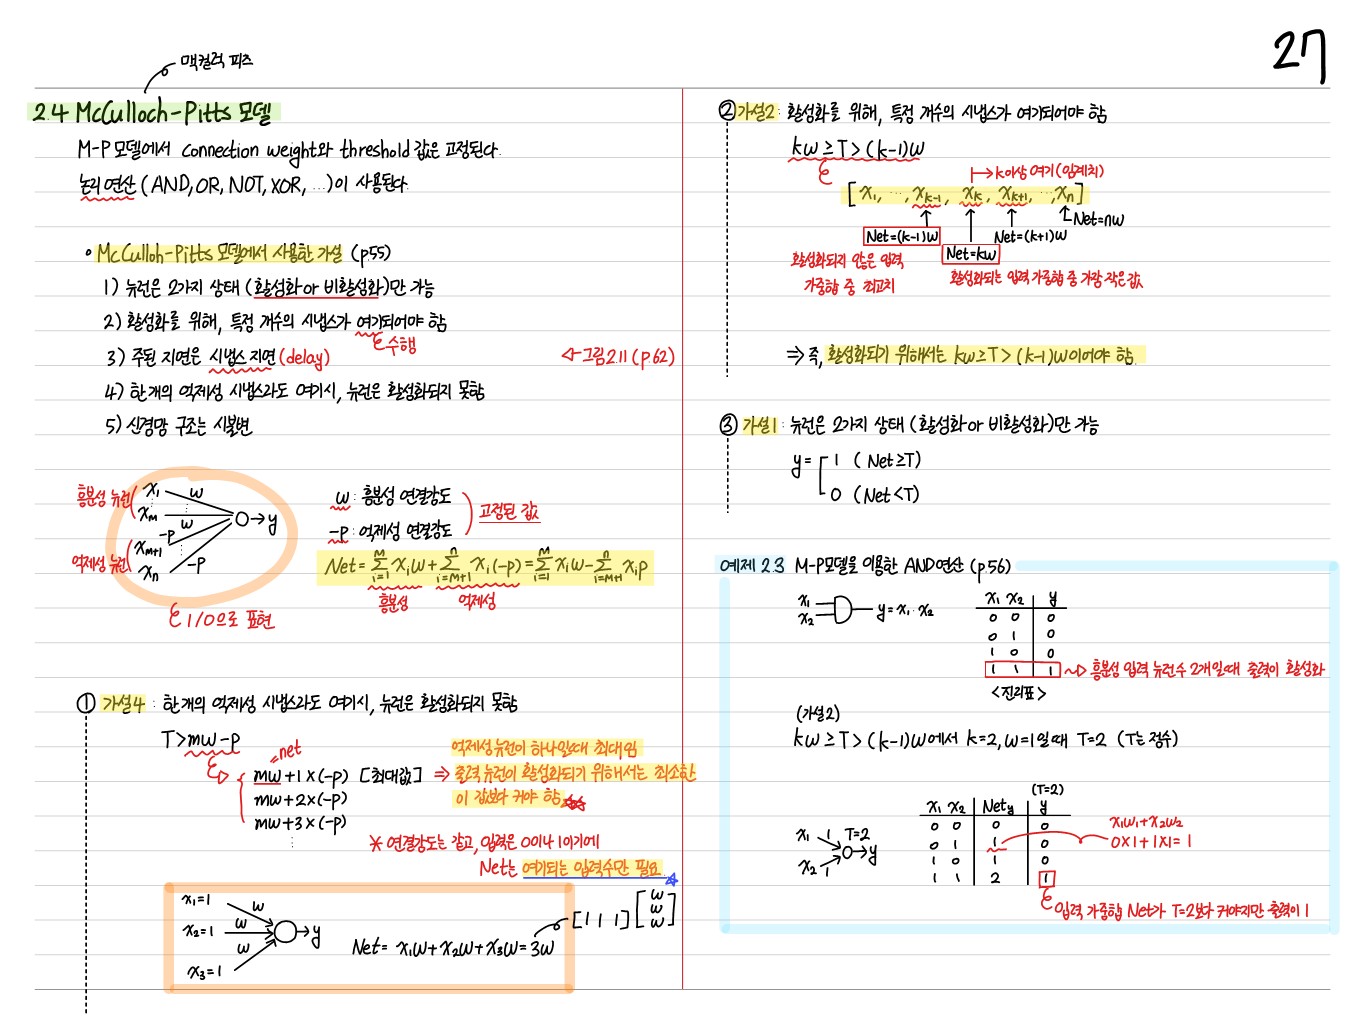 27
맥컬럭 피츠
2.4 McCulloch-Pitts 모델
M-P 모델에서 connection weight와 threshold 값은 고정된다.
논리 연산 (AND, OR, NOT, XOR, ...)이 사용된다.
∘ McCulloh-Pitts 모델에서 사용한 가설 (p55)
1) 뉴런은 2가지 상태 (활성화 or 비활성화)만 가능
2) 활성화를 위해, 특정 개수의 시냅스가 여기되어야 함
수행
3) 주된 지연은 시냅스 지연 (delay) ◁-그림 2.11 (p 62)
4) 한 개의 억제성 시냅스라도 여기시, 뉴런은 활성화되지 못함
5) 신경망 구조는 시불변
흥분성 뉴런
억제성 뉴런
x₁ w
xₘ w
xₘ₊₁ -p
xₙ -p
→y
1/0으로 표현
w : 흥분성 연결강도
-p : 억제성 연결강도
고정된 값
Net = Σᵢ₌₁ᴹ xᵢw + Σᵢ₌ₘ₊₁ⁿ xᵢ(-p) = Σᵢ₌₁ᴹ xᵢw - Σᵢ₌ₘ₊₁ⁿ xᵢp
흥분성 억제성
① 가설4 : 한개의 억제성 시냅스라도 여기시, 뉴런은 활성화되지 못함
T > mw-p
=net
mw + 1×(-p) [최대값] ⇒
mw + 2×(-p)
mw + 3×(-p)
억제성 뉴런이 하나일때 최대임
출력 뉴런이 활성화되기 위해서는 최소한
이 값보다 커야 함
* 연결강도는 같고, 입력은 0이나 1이기에
Net는 여기되는 입력수만 필요.
x₁=1 w
x₂=1 w
x₃=1 w
→y
Net = x₁w + x₂w + x₃w = 3w
[1 1 1] [w w w]
② 가설2 : 활성화를 위해, 특정 개수의 시냅스가 여기되어야 함
kw ≥ T > (k-1)w
k이상 여기 (임계치)
[x₁, ..., xₖ₋₁, xₖ, xₖ₊₁, ..., xₙ]
Net=nw
Net=(k-1)w
Net=(k+1)w
Net=kw
활성화되지 않은 입력
가중합 중 최고치
활성화되는 입력 가중합 중 가장 작은 값
⇒ 즉, 활성화되기 위해서는 kw ≥ T > (k-1)w이어야 함.
③ 가설1 : 뉴런은 2가지 상태 (활성화 or 비활성화)만 가능
y = 1 (Net ≥ T)
0 (Net < T)
예제 2.3 M-P모델을 이용한 AND연산 (p 56)
x₁
x₂
y = x₁ · x₂
x₁ x₂ y
0 0 0
0 1 0
1 0 0
1 1 1
흥분성 입력 뉴런수 2개일때 출력이 활성화
<진리표>
(가설2)
kw ≥ T > (k-1)w에서 k=2, w=1일때 T=2 (T는 정수)
x₁ 1 T=2
x₂ 1
→y
(T=2)
x₁ x₂ Net_y y
0 0 0 0
0 1 1 0
1 0 1 0
1 1 2 1
x₁w₁+x₂w₂
0×1+1×1=1
입력 가중합 Net가 T=2보다 커야지만 출력이 1